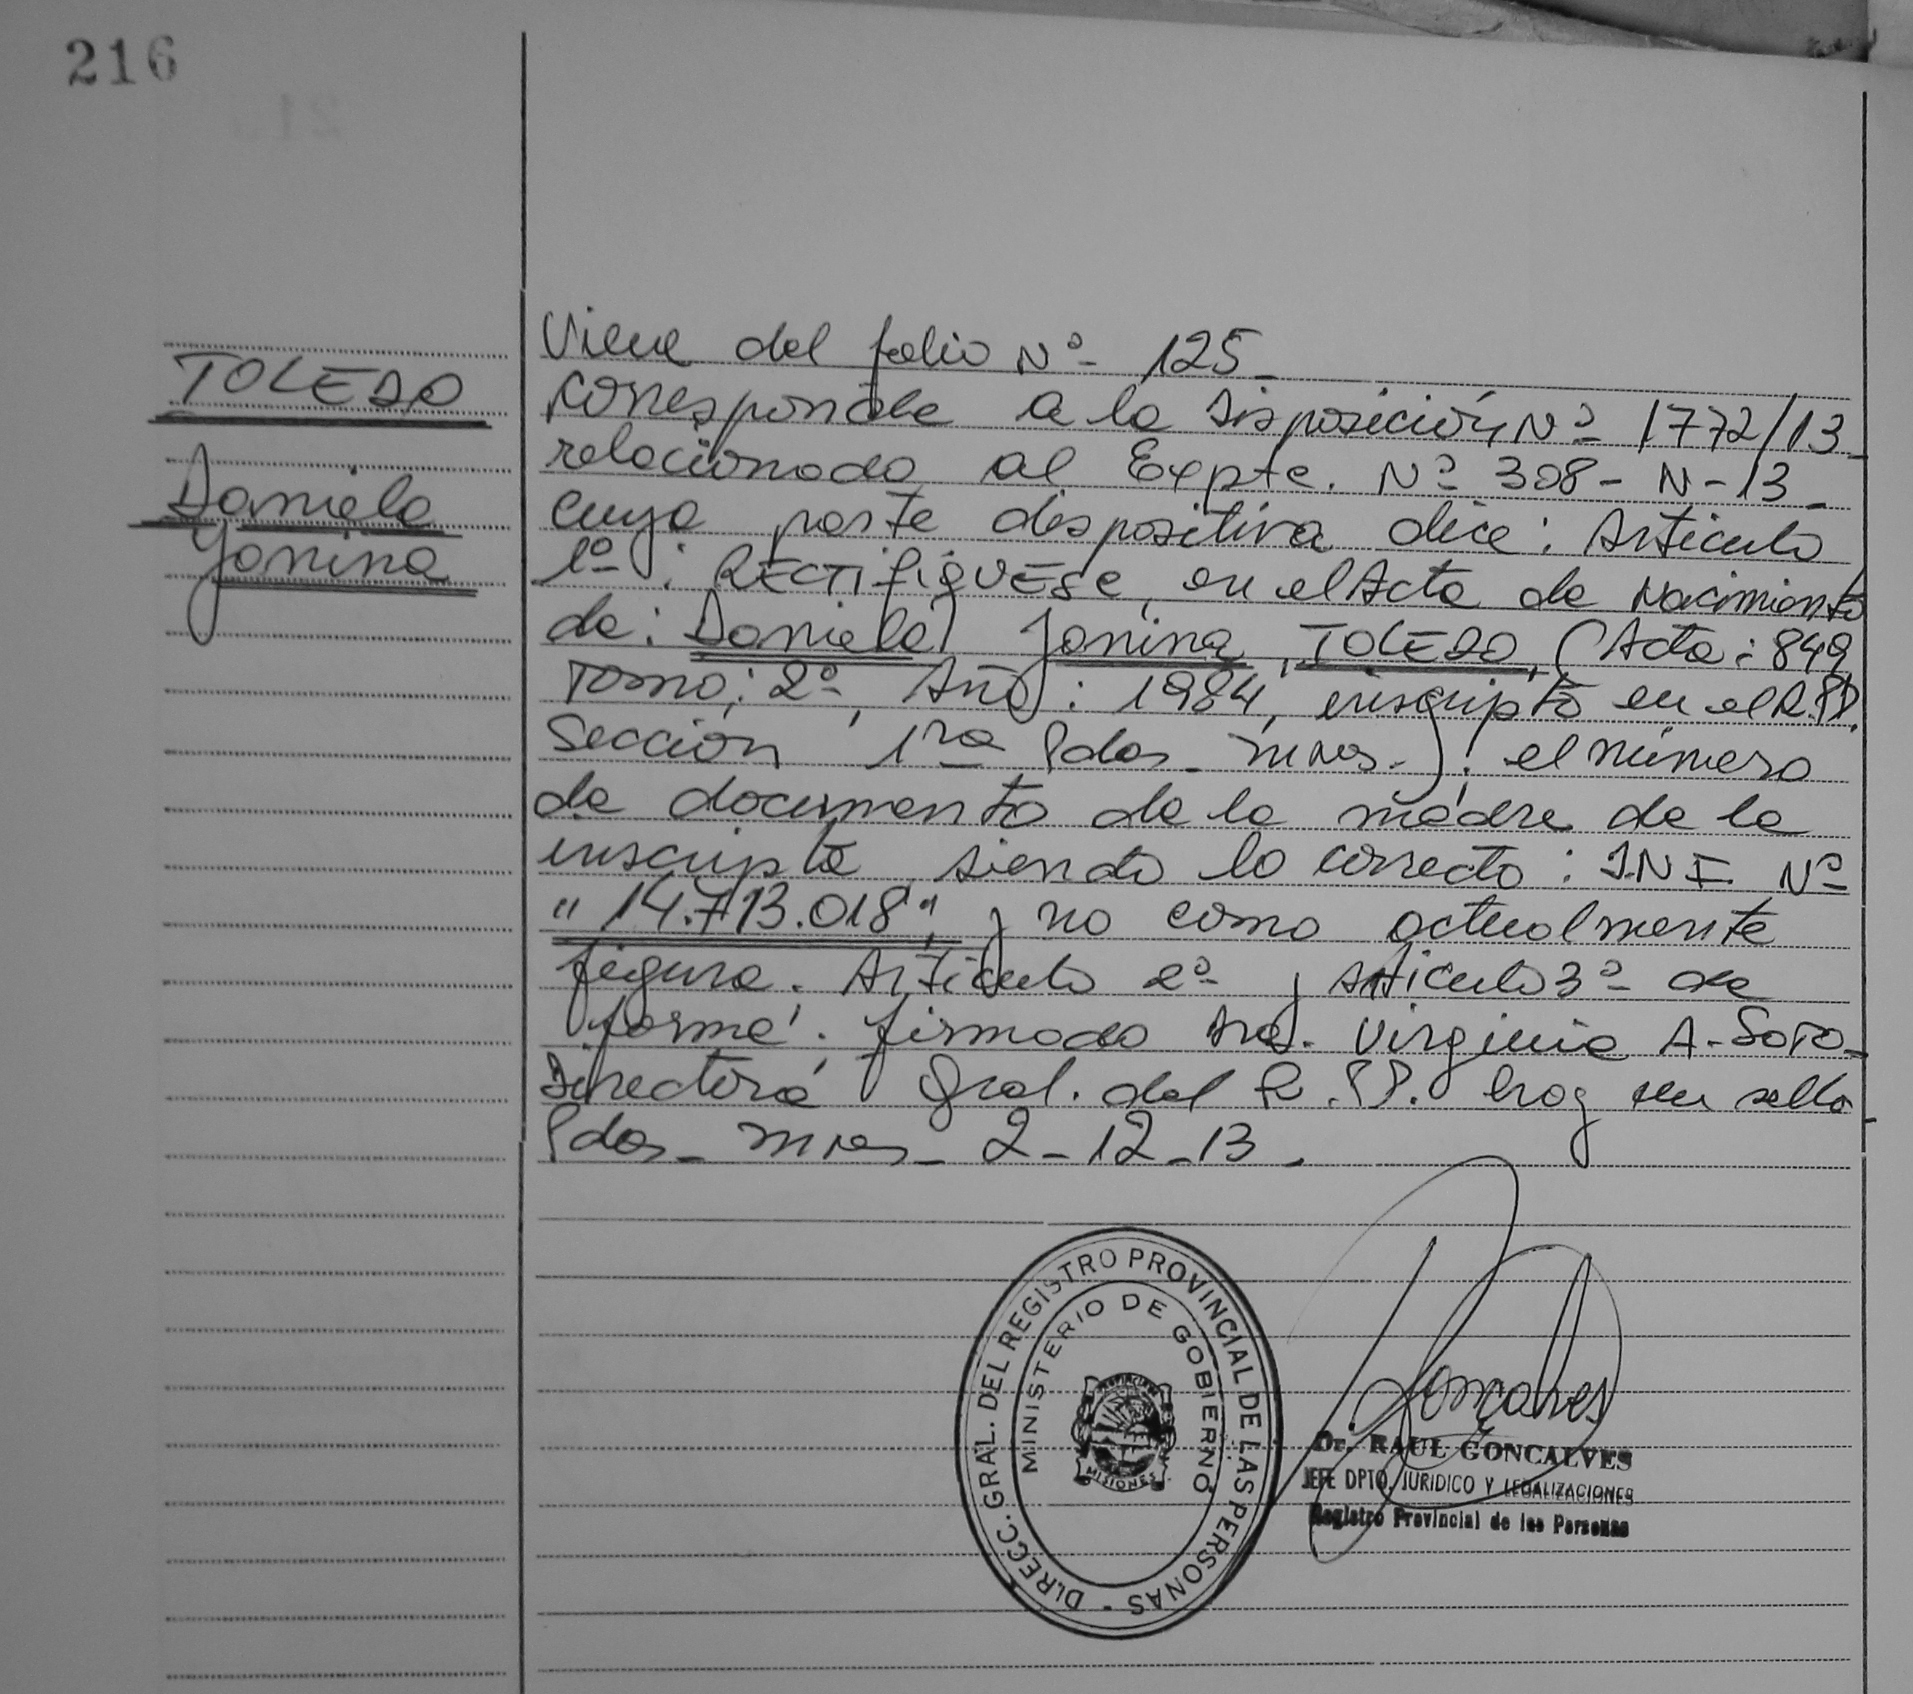 216
TOLEDO
Daniela
Yanina
Viene del folio Nº 125_
corresponde a la Disposición Nº 1772/13_
relacionado al Expte. Nº 308-N-13_
cuya parte dispositiva dice: Artículo
1º: RECTIFIQUESE, en el Acta de Nacimiento
de: Daniela Yanina, TOLEDO, (Acta: 849
Tomo: 2º, Año: 1984, inscripto en el R.PP.
Sección 1ra Pdas_ Mnes.): el número
de documento de la madre de la
inscripta siendo lo correcto: D.N.I. Nº
"14.713.018", y no como actualmente
figura. Artículo 2º y Artículo 3º de
forma. firmado Dra. Virginia A. SOTO_
Directora Gral. del R.PP. hay un sello
Pdas_ Mnes_ 2_12_13.
DIRECC. GRAL. DEL REGISTRO PROVINCIAL DE LAS PERSONAS -
MINISTERIO DE GOBIERNO
MISIONES
Goncalves
Dr. RAUL GONCALVES
JEFE DPTO. JURIDICO Y LEGALIZACIONES
Registro Provincial de las Personas